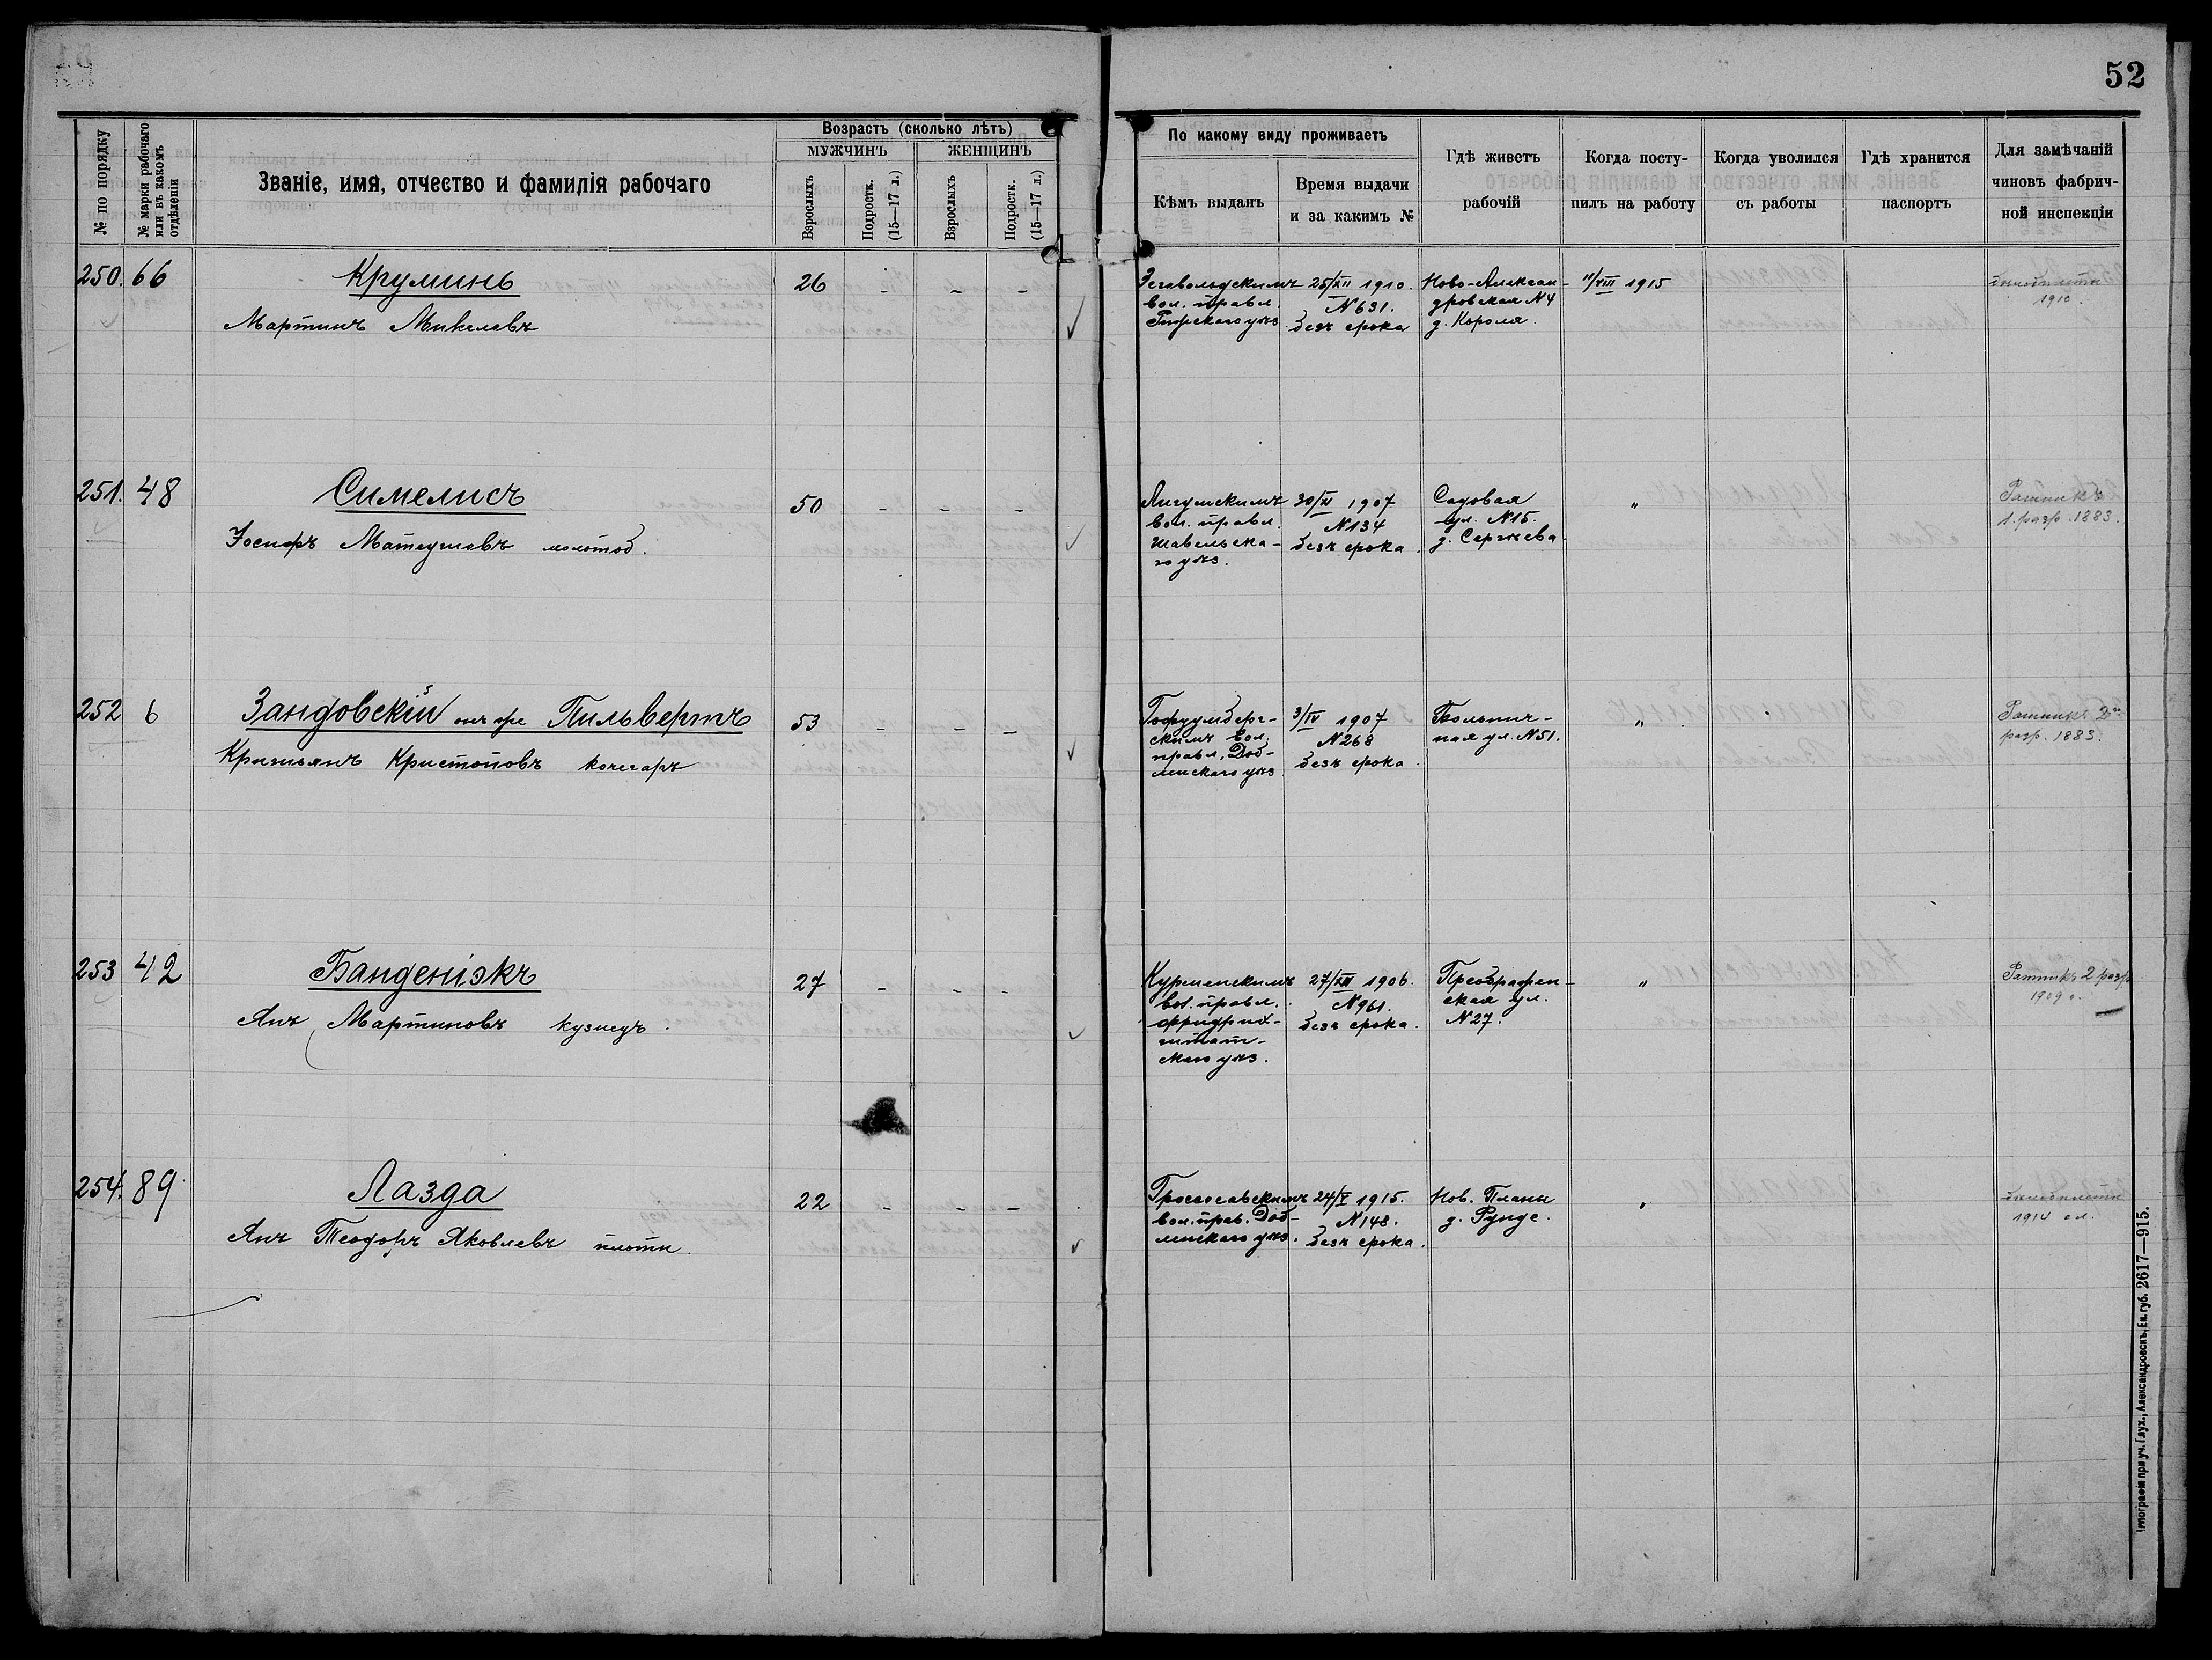 52
№ по порядку
№ марки рабочаго или въ какомъ отдѣленіи
Званіе, имя, отчество и фамилія рабочаго
Возрастъ (сколько лѣтъ)
МУЖЧИНЪ
ЖЕНЩИНЪ
Взрослыхъ
Подростк. (15—17 л.)
Взрослыхъ
Подростк. (15—17 л.)
По какому виду проживаетъ
Кѣмъ выданъ
Время выдачи и за какимъ №
Гдѣ живетъ рабочій
Когда посту-
пилъ на работу
Когда уволился
съ работы
Гдѣ хранится
паспортъ
Для замѣчаній
чиновъ фабрич-
ной инспекціи
250. 66 Круминь 26 - - -
Мартинъ Микелевъ
Зегевольдскимъ
вол. правл.
Рижскаго уѣз.
25/XII 1910.
№631.
безъ срока
Ново-Алексан-
дровская №4
д. Короля.
11/VIII 1915
1910.
251. 48 Симелисъ 50 - - -
Іосифъ Матеушевъ молотоб.
Лигумскимъ
вол. правл.
Шавельска-
го уѣз.
30/XI 1907
№134
безъ срока.
Садовая
ул. №15.
д. Сергѣева
"
Ратникъ
1. разр. 1883.
252 6 Зандовскій онъ же Пильвертъ 53 - - -
Кришьянъ Кристоповъ кочегаръ
Гофцумберг-
скимъ вол.
правл. Доб-
ленскаго уѣз
3/IV 1907
№268
безъ срока.
Больнич-
ная ул. №51.
"
Ратникъ 2го
разр. 1883.
253 42 Банденіэкъ 27 - - -
Янъ Мартиновъ кузнецъ.
Курменскимъ
вол. правл.
Фридрих-
штат-
скаго уѣз.
27/XII 1906.
№961.
безъ срока.
Преображен-
ская ул.
№27.
"
Ратникъ 2 разр
1909 г.
254. 89 Лазда 22 - - -
Янъ Теодоръ Яковлевъ плотн.
вол. прав. Доб-
ленскаго уѣз.
24/V 1915.
№148.
безъ срока.
Нов. Планы
д. Рунде.
"
1914
Типографія при уч. Глух., Александровскъ, Ек. губ. 2617—915.